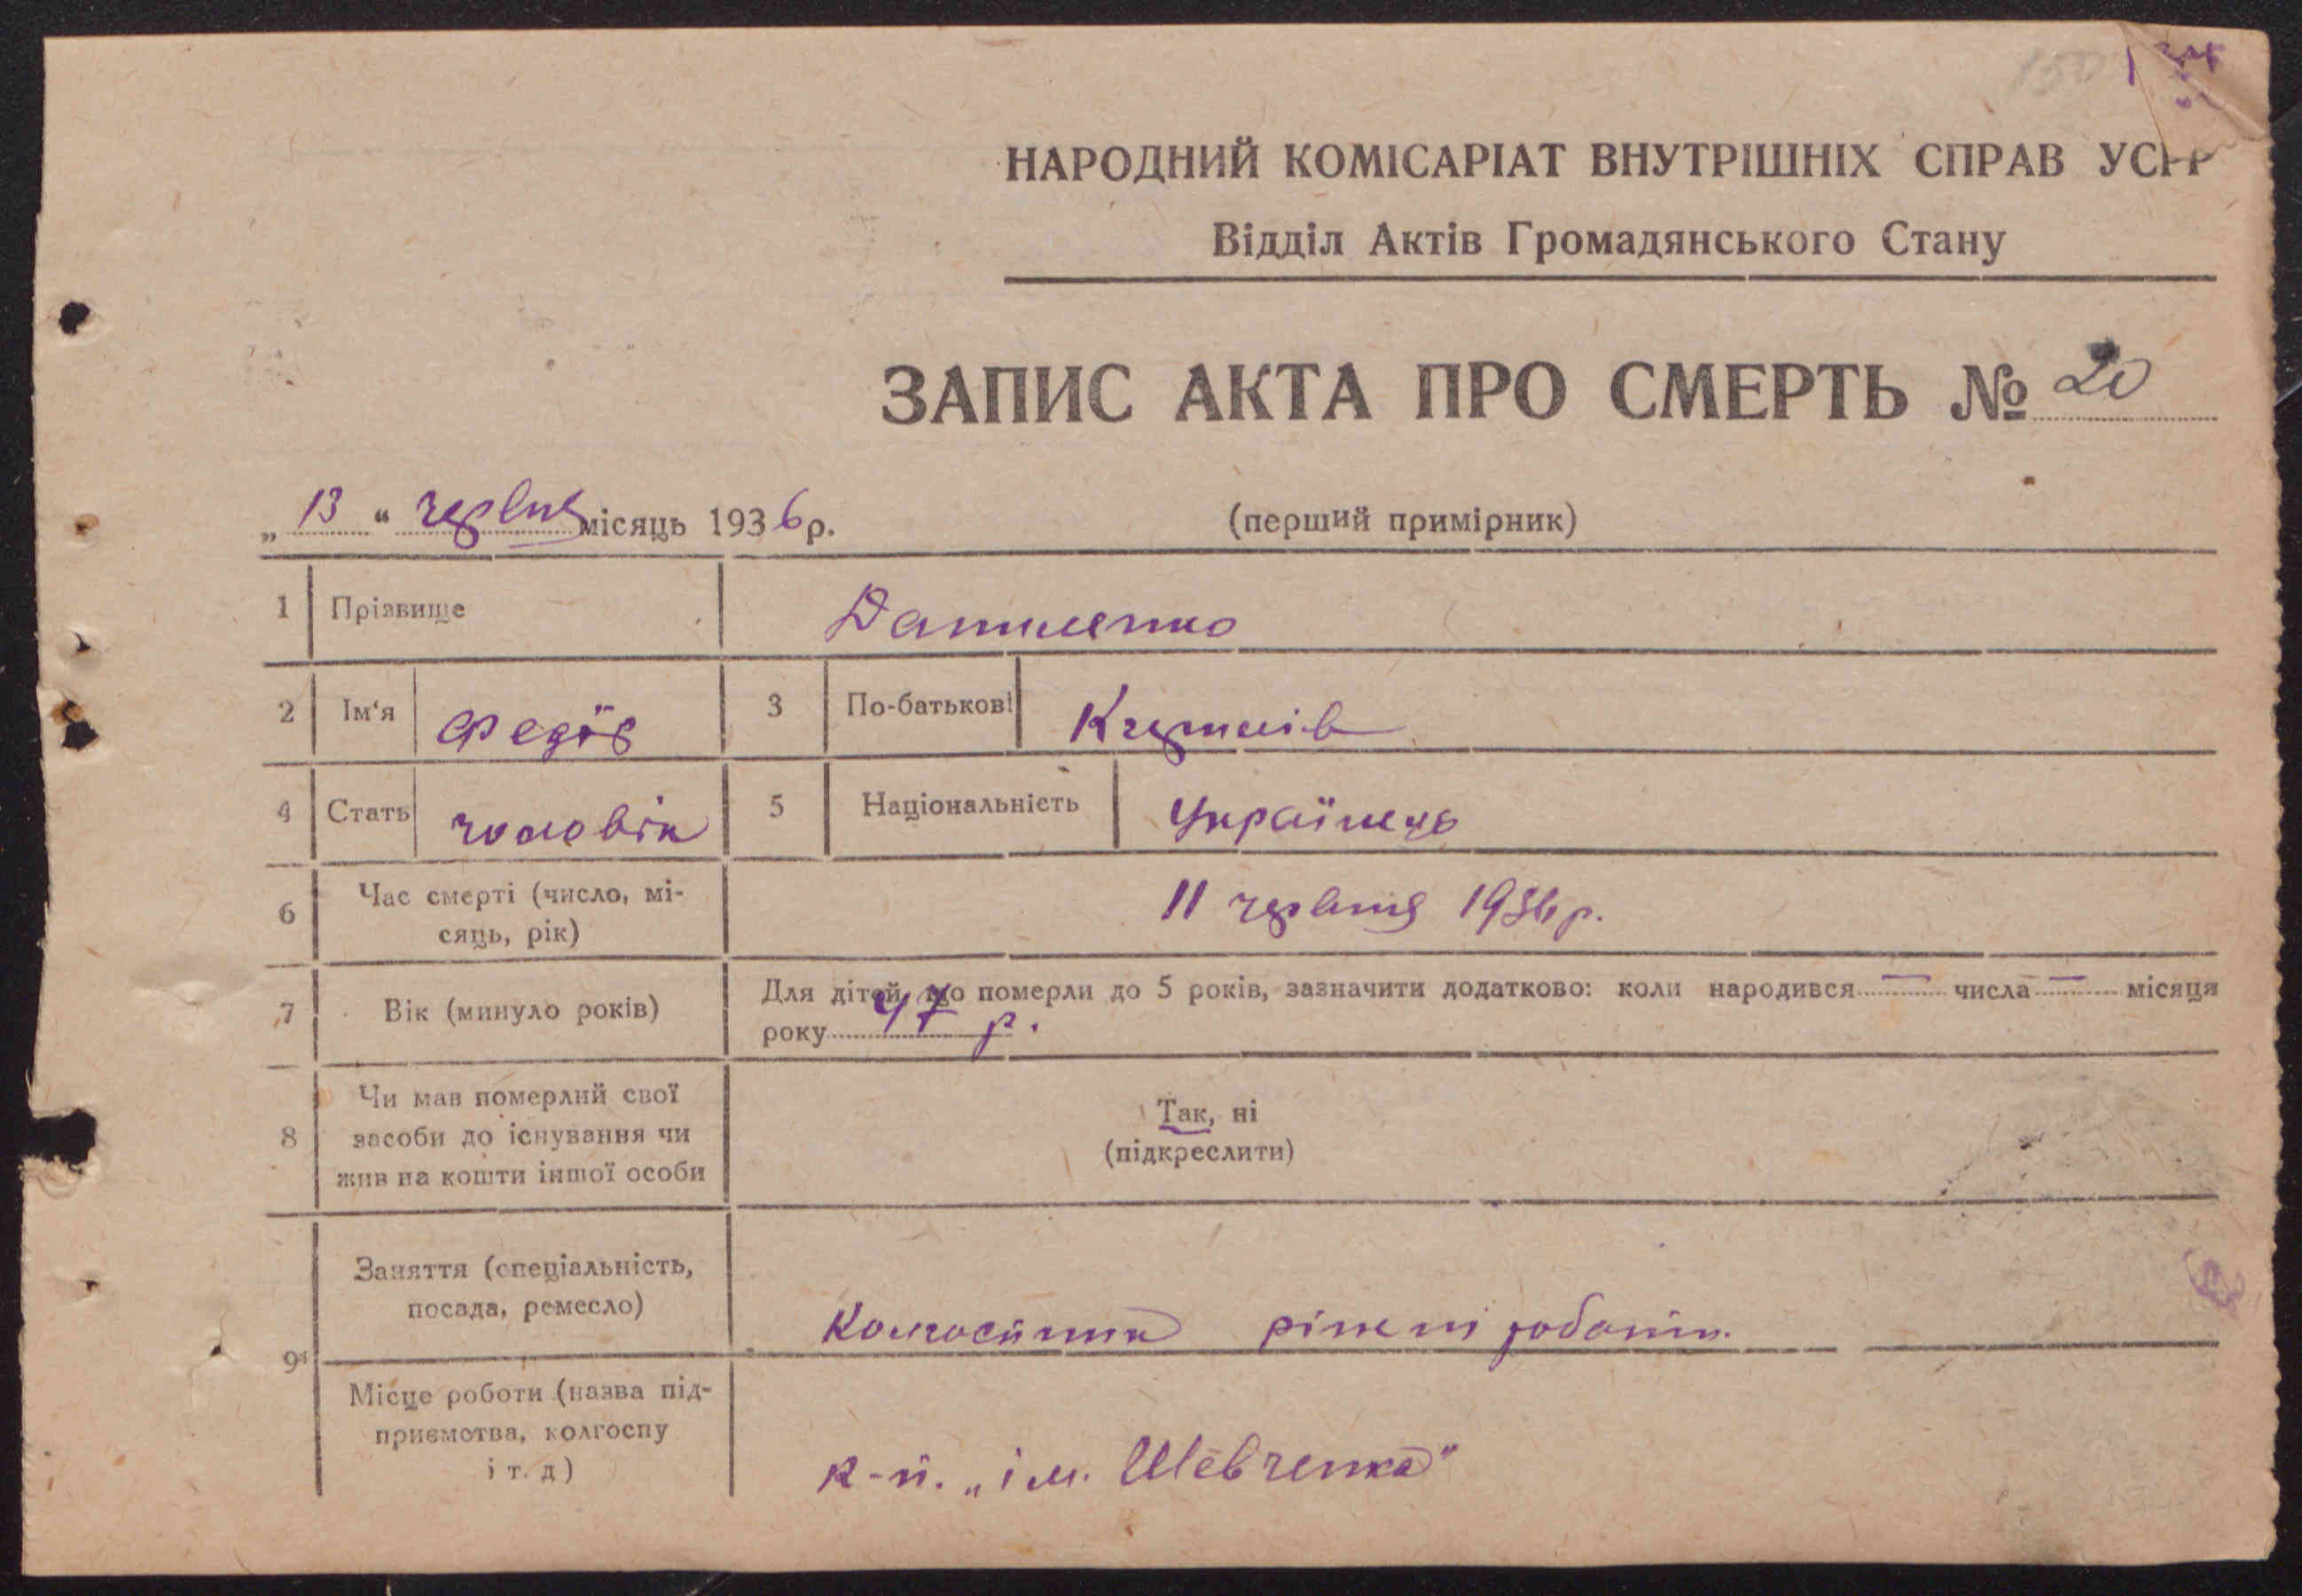 НАРОДНИЙ КОМІСАРІАТ ВНУТРІШНІХ СПРАВ УСРР
Відділ Актів Громадянського Стану
ЗАПИС АКТА ПРО СМЕРТЬ № 20
„ 13 “ червня місяць 1936 р.
(перший примірник)
1 Прізвище Даниленко
2 Ім‘я Федір 3 По-батькові
4 Стать чоловік 5 Національність Українець
6 Час смерті (число, мі-
сяць, рік) 11 червня 1936 р.
7 Вік (минуло років) Для дітей, що померли до 5 років, зазначити додатково: коли народився — числа — місяця
року 47 р.
8 Чи мав померлий свої
засоби до існування чи
жив на кошти іншої особи
Так, ні
(підкреслити)
9 Заняття (спеціальність,
посада, ремесло) Колгоспник різні роботи.
Місце роботи (назва під-
приємства, колгоспу
і т. д) к-п. „ім. Шевченка"